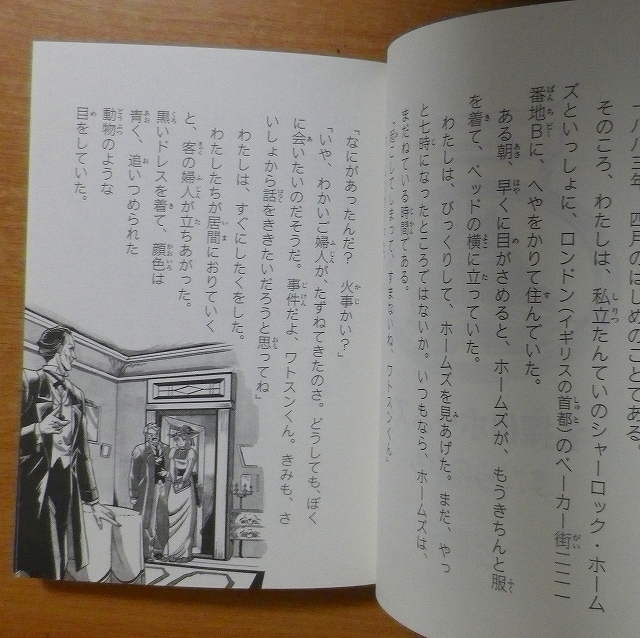 一八八三年、四月のはじめのことである。
そのころ、わたしは、私立たんていのシャーロック・ホーム
ズといっしょに、ロンドン(イギリスの首都)のベーカー街二二一
番地Bに、へやをかりて住んでいた。
ある朝、早くに目がさめると、ホームズが、もうきちんと服
を着て、ベッドの横に立っていた。
わたしは、びっくりして、ホームズを見あげた。まだ、やっ
と七時になったところではないか。いつもなら、ホームズは、
まだねている時間である。
「起こしてしまって、すまないね、ワトスンくん」
「なにがあったんだ? 火事かい?」
「いや、わかいご婦人が、たずねてきたのさ。どうしても、ぼく
に会いたいのだそうだ。事件だよ、ワトスンくん。きみも、さ
いしょから話をききたいだろうと思ってね」
わたしは、すぐにしたくをした。
わたしたちが居間におりていく
と、客の婦人が立ちあがった。
黒いドレスを着て、顔色は
青く、追いつめられた
動物のような
目をしていた。